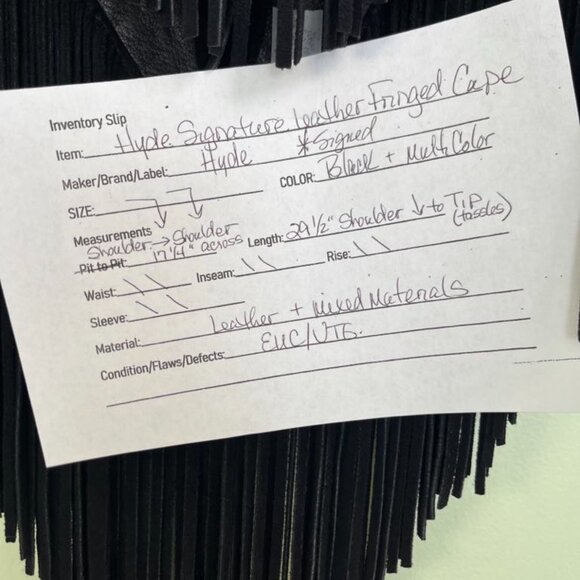 Inventory Slip
Item: Hyde Signature leather Fringed Cape
Maker/Brand/Label: Hyde *Signed
SIZE: COLOR: Black + Multi Color
Measurements
Shoulder → Shoulder
Pit to Pit: 17 1/4" across Length: 29 1/2" Shoulder ↓ to Tip (tassles)
Waist: \ \ Inseam: \ \ Rise: \ \
Sleeve: \ \
Material: leather + mixed Materials
Condition/Flaws/Defects: EUC/VTG.